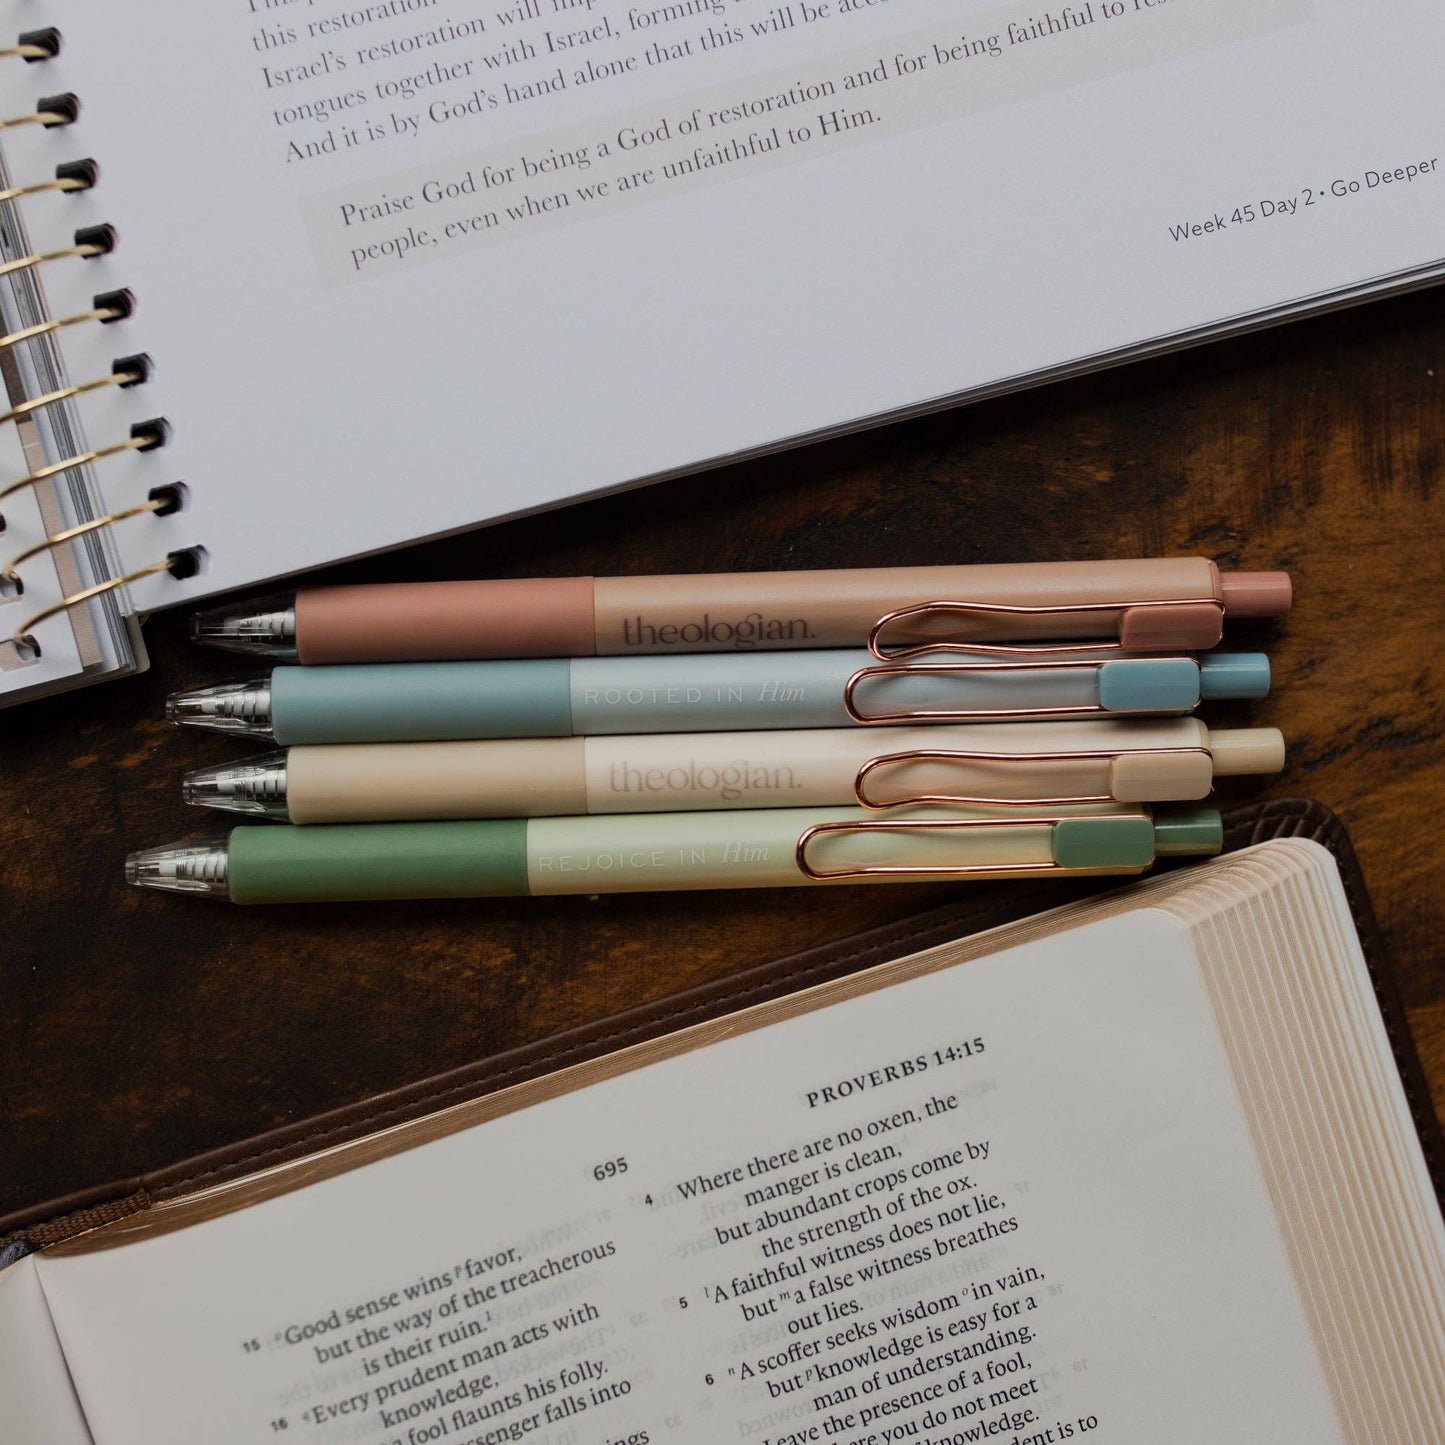 this restoration
Israel's restoration will
tongues together with Israel, forming
And it is by God's hand alone that this will be
Praise God for being a God of restoration and for being faithful to
people, even when we are unfaithful to Him.
Week 45 Day 2 • Go Deeper
theologian.
ROOTED IN Him
theologian.
REJOICE IN Him
695
PROVERBS 14:15
15 Good sense wins p favor,
but the way of the treacherous
is their ruin.1
16 Every prudent man acts with
knowledge,
a fool flaunts his folly.
falls into
4 Where there are no oxen, the
manger is clean,
but abundant crops come by
the strength of the ox.
5 l A faithful witness does not lie,
but m a false witness breathes
out lies.
6 n A scoffer seeks wisdom o in vain,
but p knowledge is easy for a
man of understanding.
Leave the presence of a fool,
you do not meet
knowledge.
is to